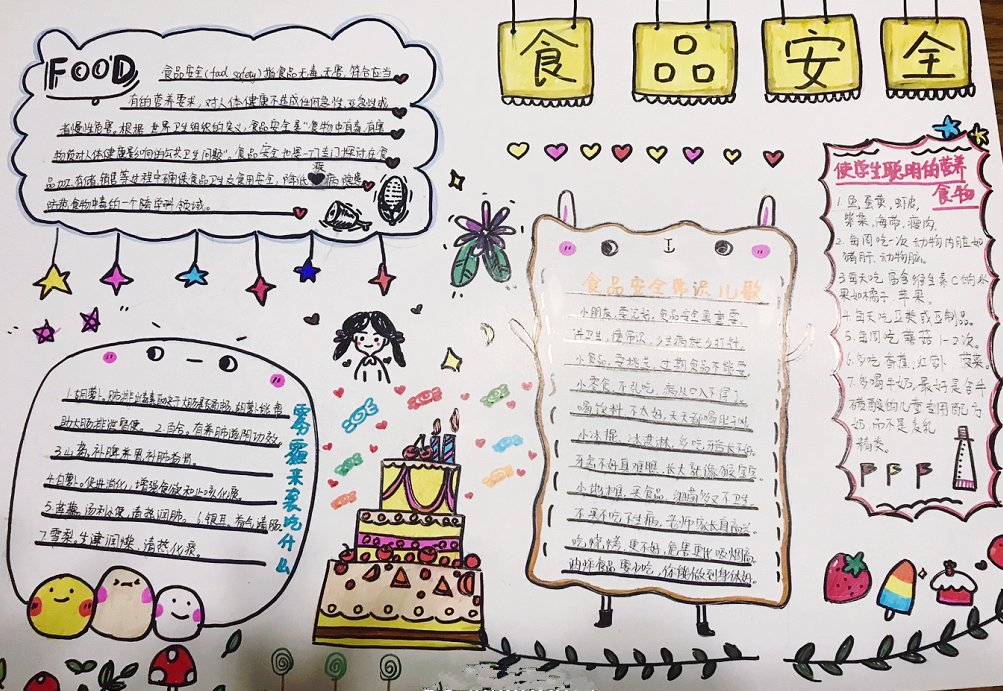 食品安全
FOOD
食品安全(food safety)指食品无毒、无害,符合应当
有的营养要求,对人体健康不造成任何急性、亚急性或
者慢性危害。根据世界卫生组织的定义,食品安全是“食物中有毒、有害
物质对人体健康影响的公共卫生问题”。食品安全也是一门专门探讨在食
品加工、存储、销售等过程中确保食品卫生及食用安全,降低疾病隐患
防范食物中毒的一个跨学科领域。
使学生聪明的营养
食物
1.鱼,蛋黄,虾皮,
紫菜,海带,瘦肉。
2.每周吃一次动物内脏如
猪肝、动物脑。
3每天吃富含维生素C的水
果如橘子、苹果。
4每天吃豆类或豆制品。
5.每周吃蘑菇1-2次。
6.多吃香蕉、红
7.多喝牛奶,最好是含牛
磺酸的儿童专用配方
奶,而不是
食品安全常识儿歌
小朋友,要记好,食品安全最重要。
讲卫生,懂常识,少生病就少打针。
小食品,要挑选,过期食品不能要
小零食,不乱吃,病从口入不得了。
喝饮料,不太好,天天都喝
小冰棍,冰淇淋,多吃牙
牙齿不好真难瞧,长大就像
小地摊,买食品,细菌多又不卫生
不买不吃不生病,老师家长
吃烧烤,更不好,危害更比吸烟高
油炸食品要少吃,你能做到身体好。
雾霾来袭吃什么
助大肠排泄粪便。2.百合。有养肺滋阴功效
3.山药,补脾养胃,补肺
4.白萝卜。促进消化,增强食欲和止咳化痰。
5.莲藕。汤利,清热润肺。6.银耳。
7.雪梨。生津润燥、清热化痰。